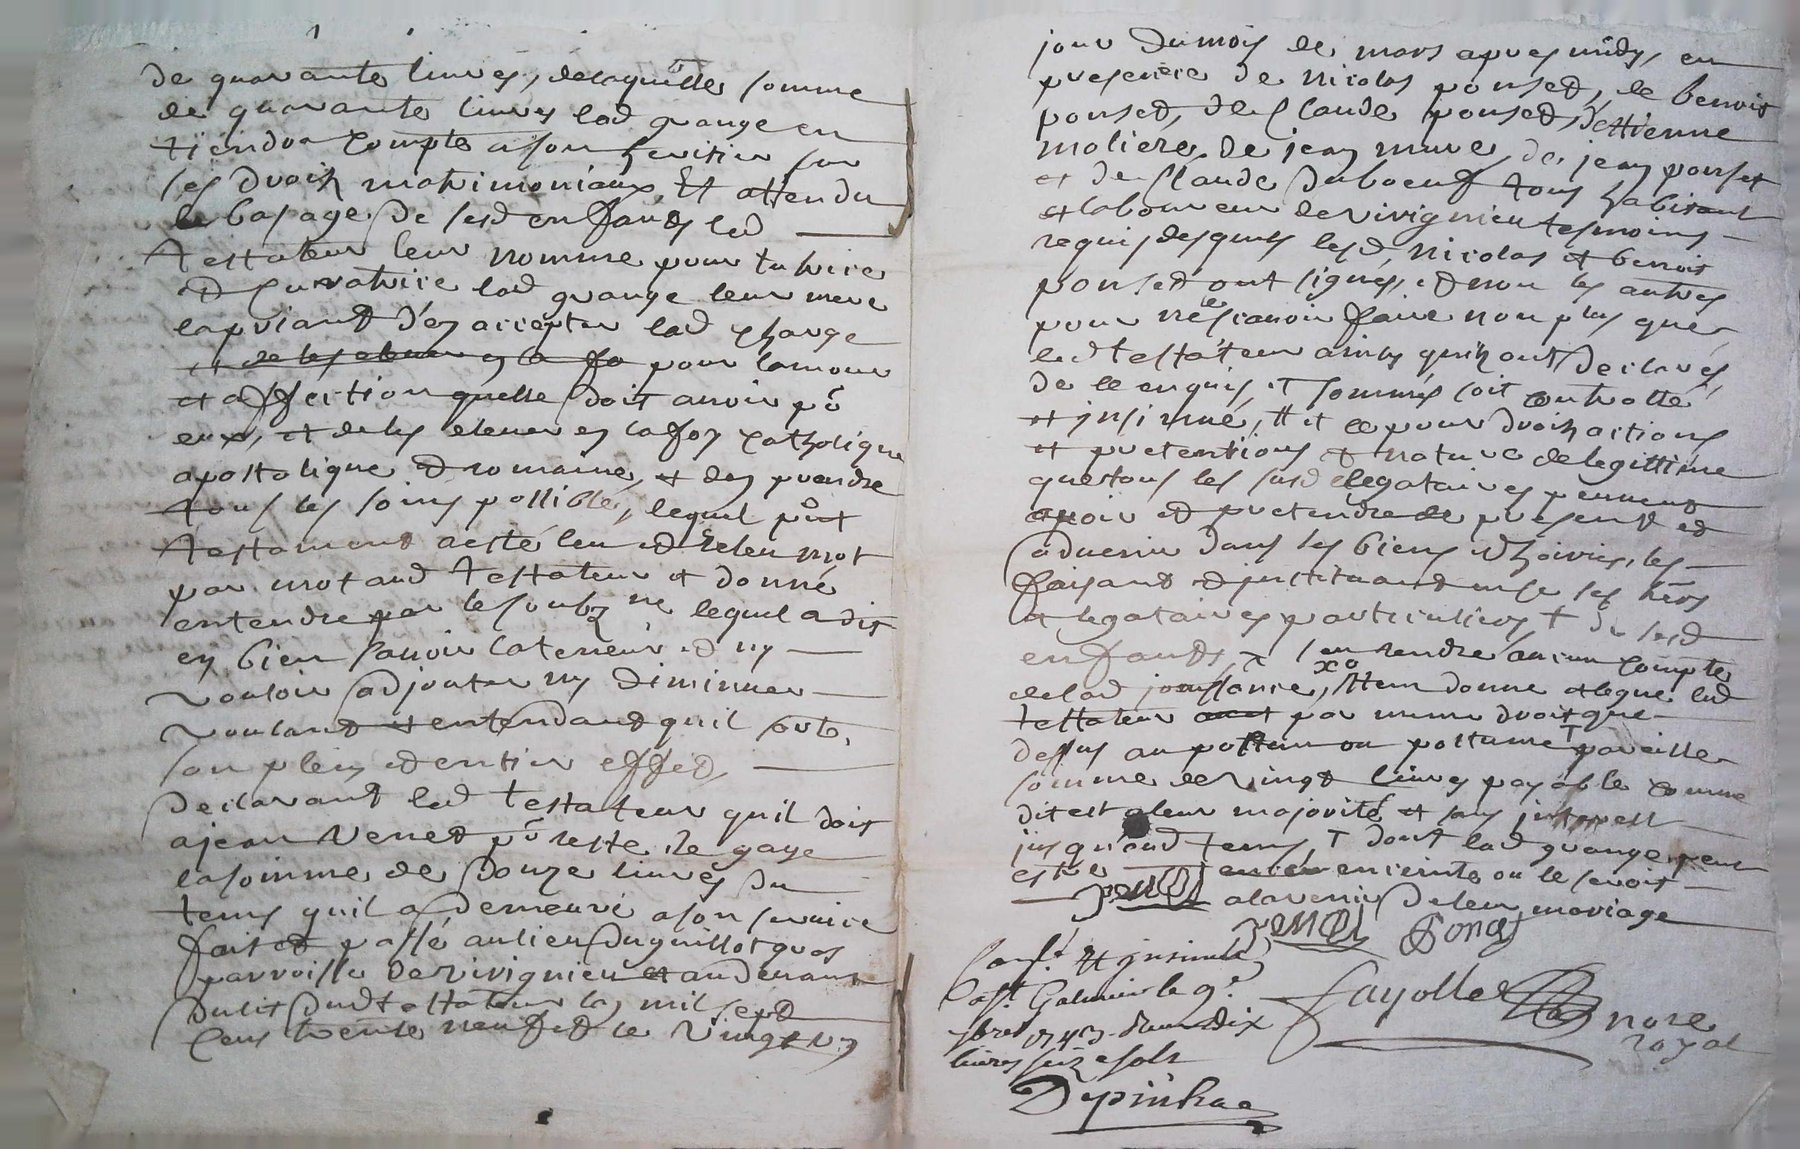 de quarante livres, delaquelle somme
de quarante livres lad grange en
tiendra Compte a son heritier sur
ses droits matrimoniaux, Et attendu
le bas age de sesd enffants led
Testateur leur nomme pour tutrice
et Curatrice lad grange leur mere
la priant d'en accepter lad charge
et de les elever en la fo pour lamour
et affection quelle doit avoir pr
eux, et de les elever en la foy catholique
apostolique et romaine, et den prendre
tous les soins possible, lequel pnt
testament a esté leu et releu mot
par mot aud testateur et donné
entendre par le soubz ne lequel a dit
en bien savoir la teneur et ny
vouloir adjouter ny diminuer
voulant et entendant quil sorte
son plein et entier effet,
declarant led testateur quil doit
a jean venet pr reste de gage
la somme de douze livres du
tems quil a demeuré a son service
fait et passé au lieu du guillot
parroisse de vivignieu et au devant
du lit dud testateur lan mil sept
Cens trente neuf et le vingt un
jour du mois de mars apres midy, en
presence de nicolas ponset, de benoit
ponset, de Claude ponset, d'ettienne
moliere de jean mure, de jean ponset
et de Claude duboeuf tous habitant
et laboureur de vivignieu tesmoins
requis desquels lesd, nicolas et benoit
ponset ont signés, et non les autres
pour ne le scavoir faire non plus que
led testateur ainsy quils ont declarés
de ce enquis, et sommés soit controllé
et insinué, Et ce pour droits actions
et pretentions et nature de legittime
que tous les susd legataires peuvent
avoir et pretendre de present et
advenir dans ses biens et hoiries, les
faisant et instituant en ce ses hers
et legataires particuliers + de sesd
enffants, x sen rendre aucun compte
de lad jouissance, xo Item donne et legue led
testateur par mesme droit que
dessus au postum ou postume T pareille
somme de vingt livres payable comme
dit est a leur majorité et sans interest
jusquaud tems, T dont lad grange peut
estre enceinte ou le seroit
a lavenir de leur mariage
Pons
Conlé Et insinué
Galmier le 9e
1743 Reçu dix
livres seize sols
Fayolle nore
royal
Depinhac